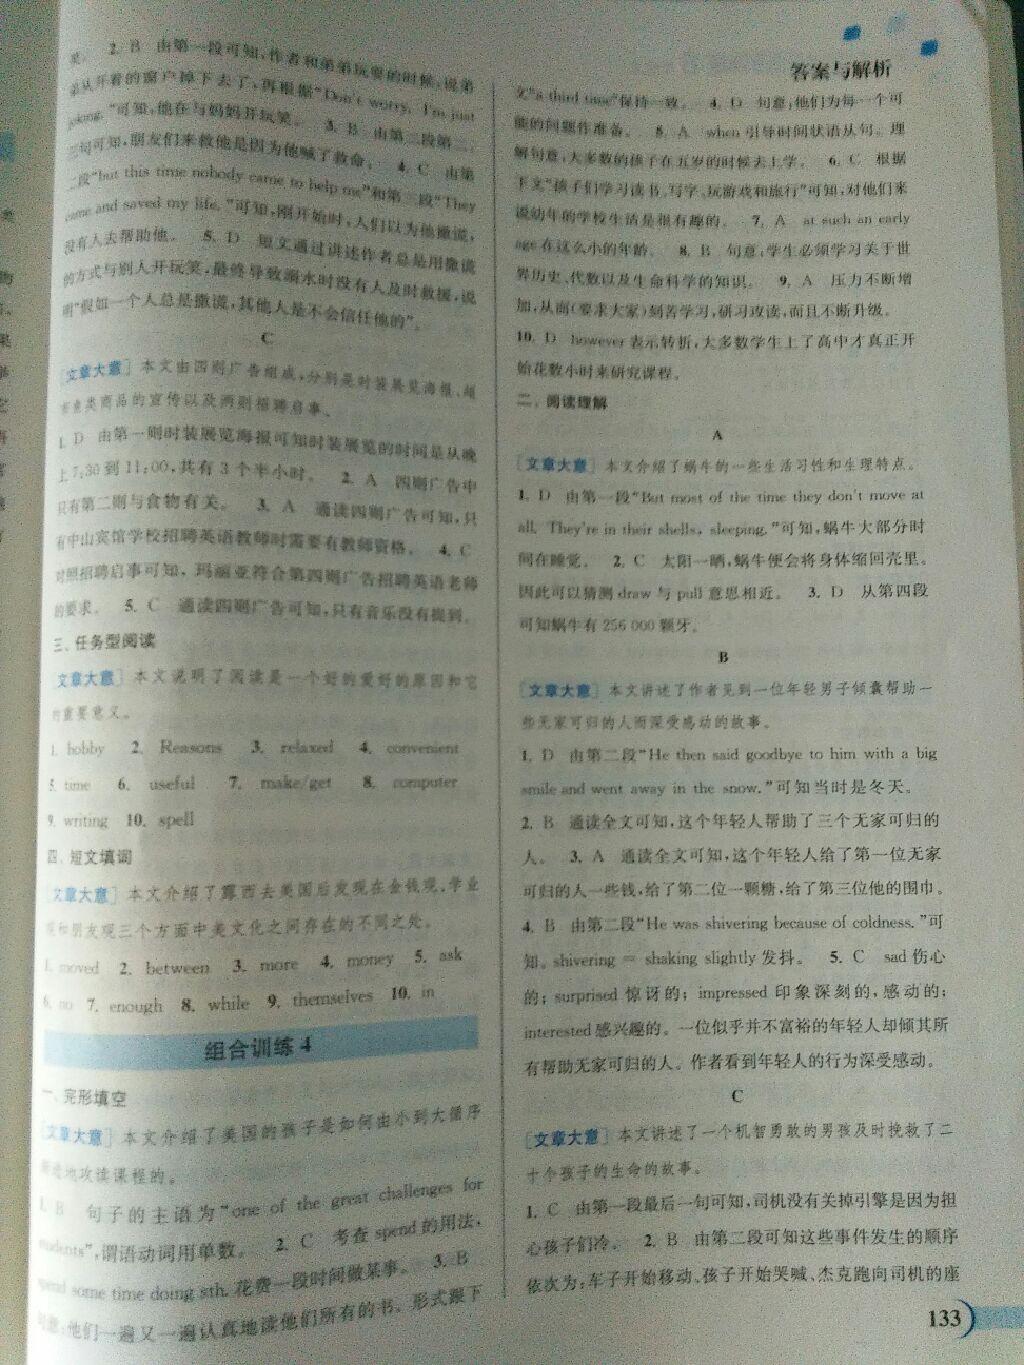 答案与解析
2. B 由第一段可知,作者和弟弟玩耍的时候,说弟
弟从开着的窗户掉下去了,再根据“Don't worry, I'm just
joking.”可知,他在与妈妈开玩笑。 3. B 由第二段第二、
三句可知,朋友们来救他是因为他喊了救命。 4. C 由第
二段“but this time nobody came to help me”和第三段“They
came and saved my life.”可知,刚开始时,人们以为他撒谎,
没有人去帮助他。 5. D 短文通过讲述作者总是用撒谎
的方式与别人开玩笑,最终导致溺水时没有人及时救援,说
明“假如一个人总是撒谎,其他人是不会信任他的”。
C
[文章大意] 本文由四则广告组成,分别是时装展览海报、超
市鱼类商品的宣传以及两则招聘启事。
1. D 由第一则时装展览海报可知时装展览的时间是从晚
上7:30到11:00,共有3个半小时。 2. A 四则广告中
只有第二则与食物有关。 3. A 通读四则广告可知,只
有中山宾馆学校招聘英语教师时需要有教师资格。 4. C
对照招聘启事可知,玛丽亚符合第四则广告招聘英语老师
的要求。 5. C 通读四则广告可知,只有音乐没有提到。
三、任务型阅读
[文章大意] 本文说明了阅读是一个好的爱好的原因和它
的重要意义。
1. hobby 2. Reasons 3. relaxed 4. convenient
5. time 6. useful 7. make/get 8. computer
9. writing 10. spell
四、短文填词
[文章大意] 本文介绍了露西去美国后发现在金钱观、学业
观和朋友观三个方面中美文化之间存在的不同之处。
1. moved 2. between 3. more 4. money 5. ask
6. no 7. enough 8. while 9. themselves 10. in
组合训练4
一、完形填空
[文章大意] 本文介绍了美国的孩子是如何由小到大循序
渐进地攻读课程的。
1. B 句子的主语为“one of the great challenges for
students”,谓语动词用单数。 2. C 考查spend的用法,
spend some time doing sth. 花费一段时间做某事。 3. B
句意:他们一遍又一遍认真地读他们所有的书。形式跟下
文“a third time”保持一致。 4. D 句意:他们为每一个可
能的问题作准备。 5. A when引导时间状语从句。理
解句意,大多数的孩子在五岁的时候去上学。 6. C 根据
下文“孩子们学习读书、写字、玩游戏和旅行”可知,对他们来
说幼年的学校生活是很有趣的。 7. A at such an early
age在这么小的年龄。 8. B 句意:学生必须学习关于世
界历史、代数以及生命科学的知识。 9. A 压力不断增
加,从而(要求大家)刻苦学习,研习攻读,而且不断升级。
10. D however表示转折,大多数学生上了高中才真正开
始花数小时来研究课程。
二、阅读理解
A
[文章大意] 本文介绍了蜗牛的一些生活习性和生理特点。
1. D 由第一段“But most of the time they don't move at
all. They're in their shells, sleeping.”可知,蜗牛大部分时
间在睡觉。 2. C 太阳一晒,蜗牛便会将身体缩回壳里。
因此可以猜测draw与pull意思相近。 3. D 从第四段
可知蜗牛有256 000颗牙。
B
[文章大意] 本文讲述了作者见到一位年轻男子倾囊帮助一
些无家可归的人而深受感动的故事。
1. D 由第二段“He then said goodbye to him with a big
smile and went away in the snow.”可知当时是冬天。
2. B 通读全文可知,这个年轻人帮助了三个无家可归的
人。 3. A 通读全文可知,这个年轻人给了第一位无家
可归的人一些钱,给了第二位一颗糖,给了第三位他的围巾。
4. B 由第二段“He was shivering because of coldness.”可
知。shivering = shaking slightly 发抖。 5. C sad伤心
的; surprised 惊讶的; impressed 印象深刻的,感动的;
interested感兴趣的。一位似乎并不富裕的年轻人却倾其所
有帮助无家可归的人。作者看到年轻人的行为深受感动。
C
[文章大意] 本文讲述了一个机智勇敢的男孩及时挽救了二
十个孩子的生命的故事。
1. C 由第一段最后一句可知,司机没有关掉引擎是因为担
心孩子们冷。 2. B 由第二段可知这些事件发生的顺序
依次为:车子开始移动、孩子开始哭喊、杰克跑向司机的座
133